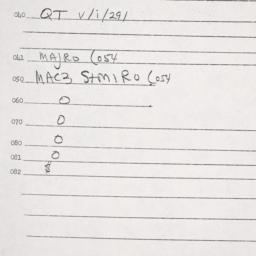 060 QT V/i/291
062 MAJRO (054
050 MAC3 StMIRO (054
060 0
070 0
080 0
081 0
082